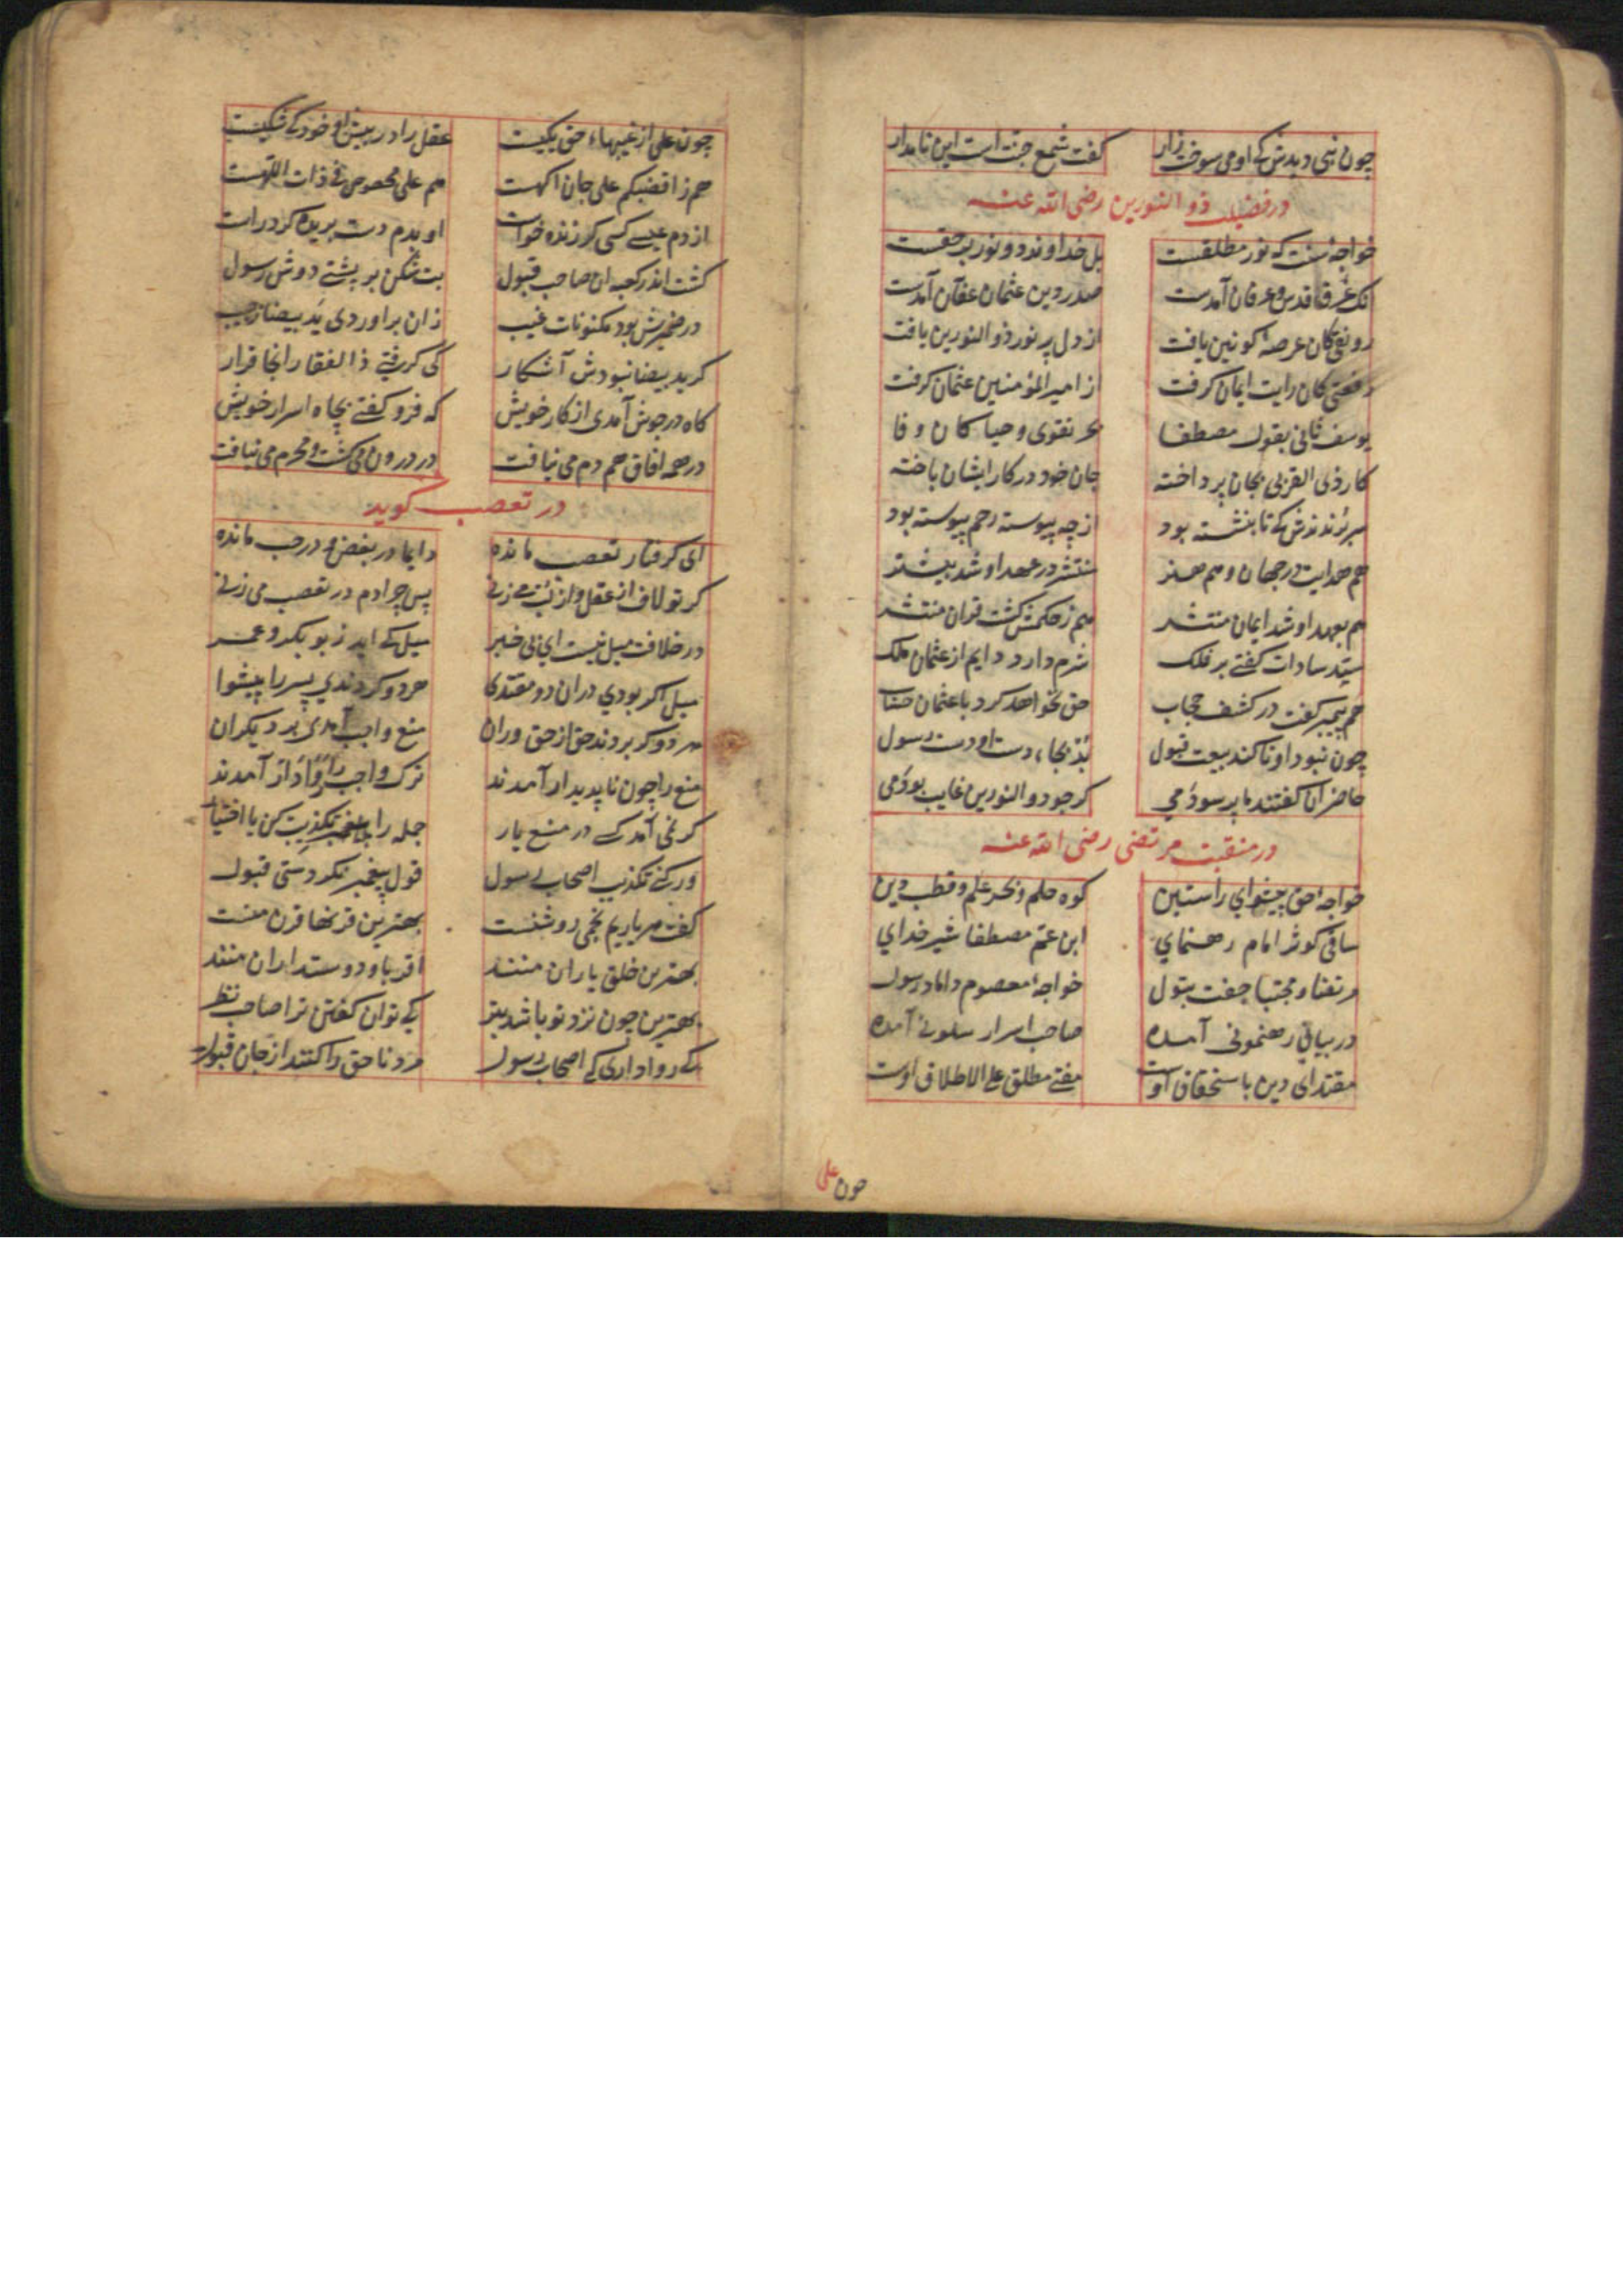 چون نبی دیدش که او می سوخت زار کفت شمع جنت است این نامدار
در فضیلت ذو النورین رضی الله عنه
خواجهٔ سنت که نور مطلقست بل خداوند دو نور بر حقست
انک غرق قدس و عرفان آمدست صدر دین عثمان عفان آمدست
رونقی کان عرصهٔ کونین یافت از دل پر نور ذو النورین یافت
رفعتی کان رایت ایمان کرفت از امیر المؤمنین عثمان کرفت
یوسف ثانی بقول مصطفا بحر تقوی و حیا کان وفا
کار ذی القربی بجان پرداخته جان خود در کار ایشان باخته
سر بریدندش که تا بنشسته بود از چه پیوسته رحم پیوسته بود
هم هدایت در جهان و هم هنر منتشر در عهد او شد بیشتر
هم بعهد او شد ایمان منتشر هم ز حکمش کشت قران منتشر
سید سادات کفتی بر فلک شرم دارد دایم از عثمان ملک
هم پیمبر کفت در کشف حجاب حق نخواهد کرد با عثمان حساب
چون نبود او تا کند بیعت قبول بد بجاء دست او دست رسول
حاضران کفتند ما بر سودمی کر چو ذو النورین غایب بودمی
در منقبت مرتضی رضی الله عنه
خواجهٔ حق پیشوای راستین کوه حلم و بحر علم و قطب دین
ساقی کوثر امام رهنمای ابن عم مصطفا شیر خدای
مرتضا و مجتبا جفت بتول خواجهٔ معصوم داماد رسول
در بیانی رهنمونی آمده صاحب اسرار سلونی آمده
مقتدای دین باستحقاق اوست مفتی مطلق علی الاطلاق اوست
چون علی
چون علی از غیبهاء حق یکیست عقل را در بینش او خود کی شکیست
هم ز اقضیکم علی جان اکهست هم علی مخصوص فی ذات اللهست
از دم عیسی کسی کر زنده خواست او بدم دست بریده کرد راست
کشت اندر کعبه ان صاحب قبول بت شکن بر پشتی دوش رسول
در ضمیرش بود مکنونات غیب زان براوردی ید بیضا ز جیب
کر ید بیضا نبودش آشکار کی کرفتی ذا لفقار انجا قرار
کاه در جوش آمدی از کار خویش که فرو کفتی بچاه اسرار خویش
در همه افاق هم دم می نیافت در درون می کشت و محرم می نیافت
در تعصب کوید
ای کرفتار تعصب مانده دایما در بغض و در حب مانده
کر تو لاف از عقل و از لب می زنی پس چرا دم در تعصب می زنی
در خلافت میل نیست ای بی خبر میل کی اید ز بوبکر و عمر
میل اکر بودی دران دو مقتدا هر دو کردندی پسر را پیشوا
هر دو کر بردند حق از حق وران منع واجب آمدی بر دیکران
منع را چون نا پدیدار آمدند ترک واجب را روادار آمدند
کر نمی آمد کسی در منع یار جمله را تکذیب کن یا اختیار
ور کنی تکذیب اصحاب رسول قول پیغمبر نکردستی قبول
کفت هر یاریم نجمی روشنست بهترین قرنها قرن منست
بهترین خلق یاران منند اقربا و دوستداران منند
بهترین چون نزد تو باشد بتر کی توان کفتن ترا صاحب نظر
کی رواداری که اصحاب رسول مرد ناحق را کنند از جان قبول